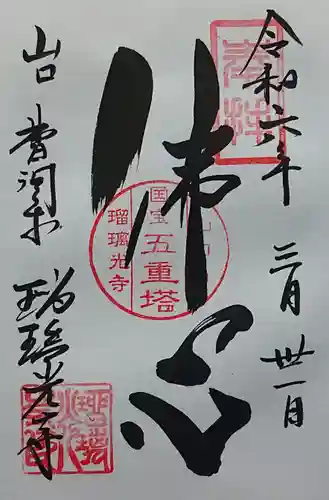 令和六年 三月 卅一日
奉拝
佛心
国宝
五重塔
瑠璃光寺
山口 曹洞宗
瑠璃光寺